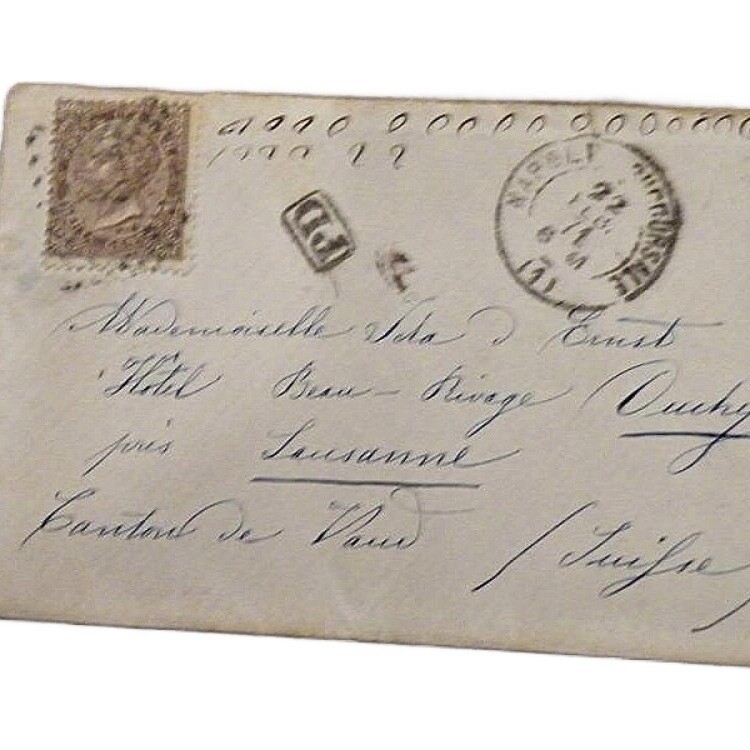 PD
NAPOLI SUCCURSALE
22
Mademoiselle Vita d'Ernst
Hôtel Beau-Rivage Ouchy
près Lausanne
Canton de Vaud (Suisse)